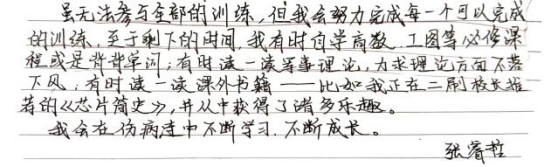 虽无法参与全部的训练,但我会努力完成每一个可以完成
的训练。至于剩下的时间,我有时自学高数、工图等必修课
程或是背背单词;有时读一读军事理论,力求理论方面不落
下风;有时读一读课外书籍——比如我正在三刷校长推
荐的《芯片简史》,并从中获得了诸多乐趣。
我会在伤病连中不断学习、不断成长。
张睿哲